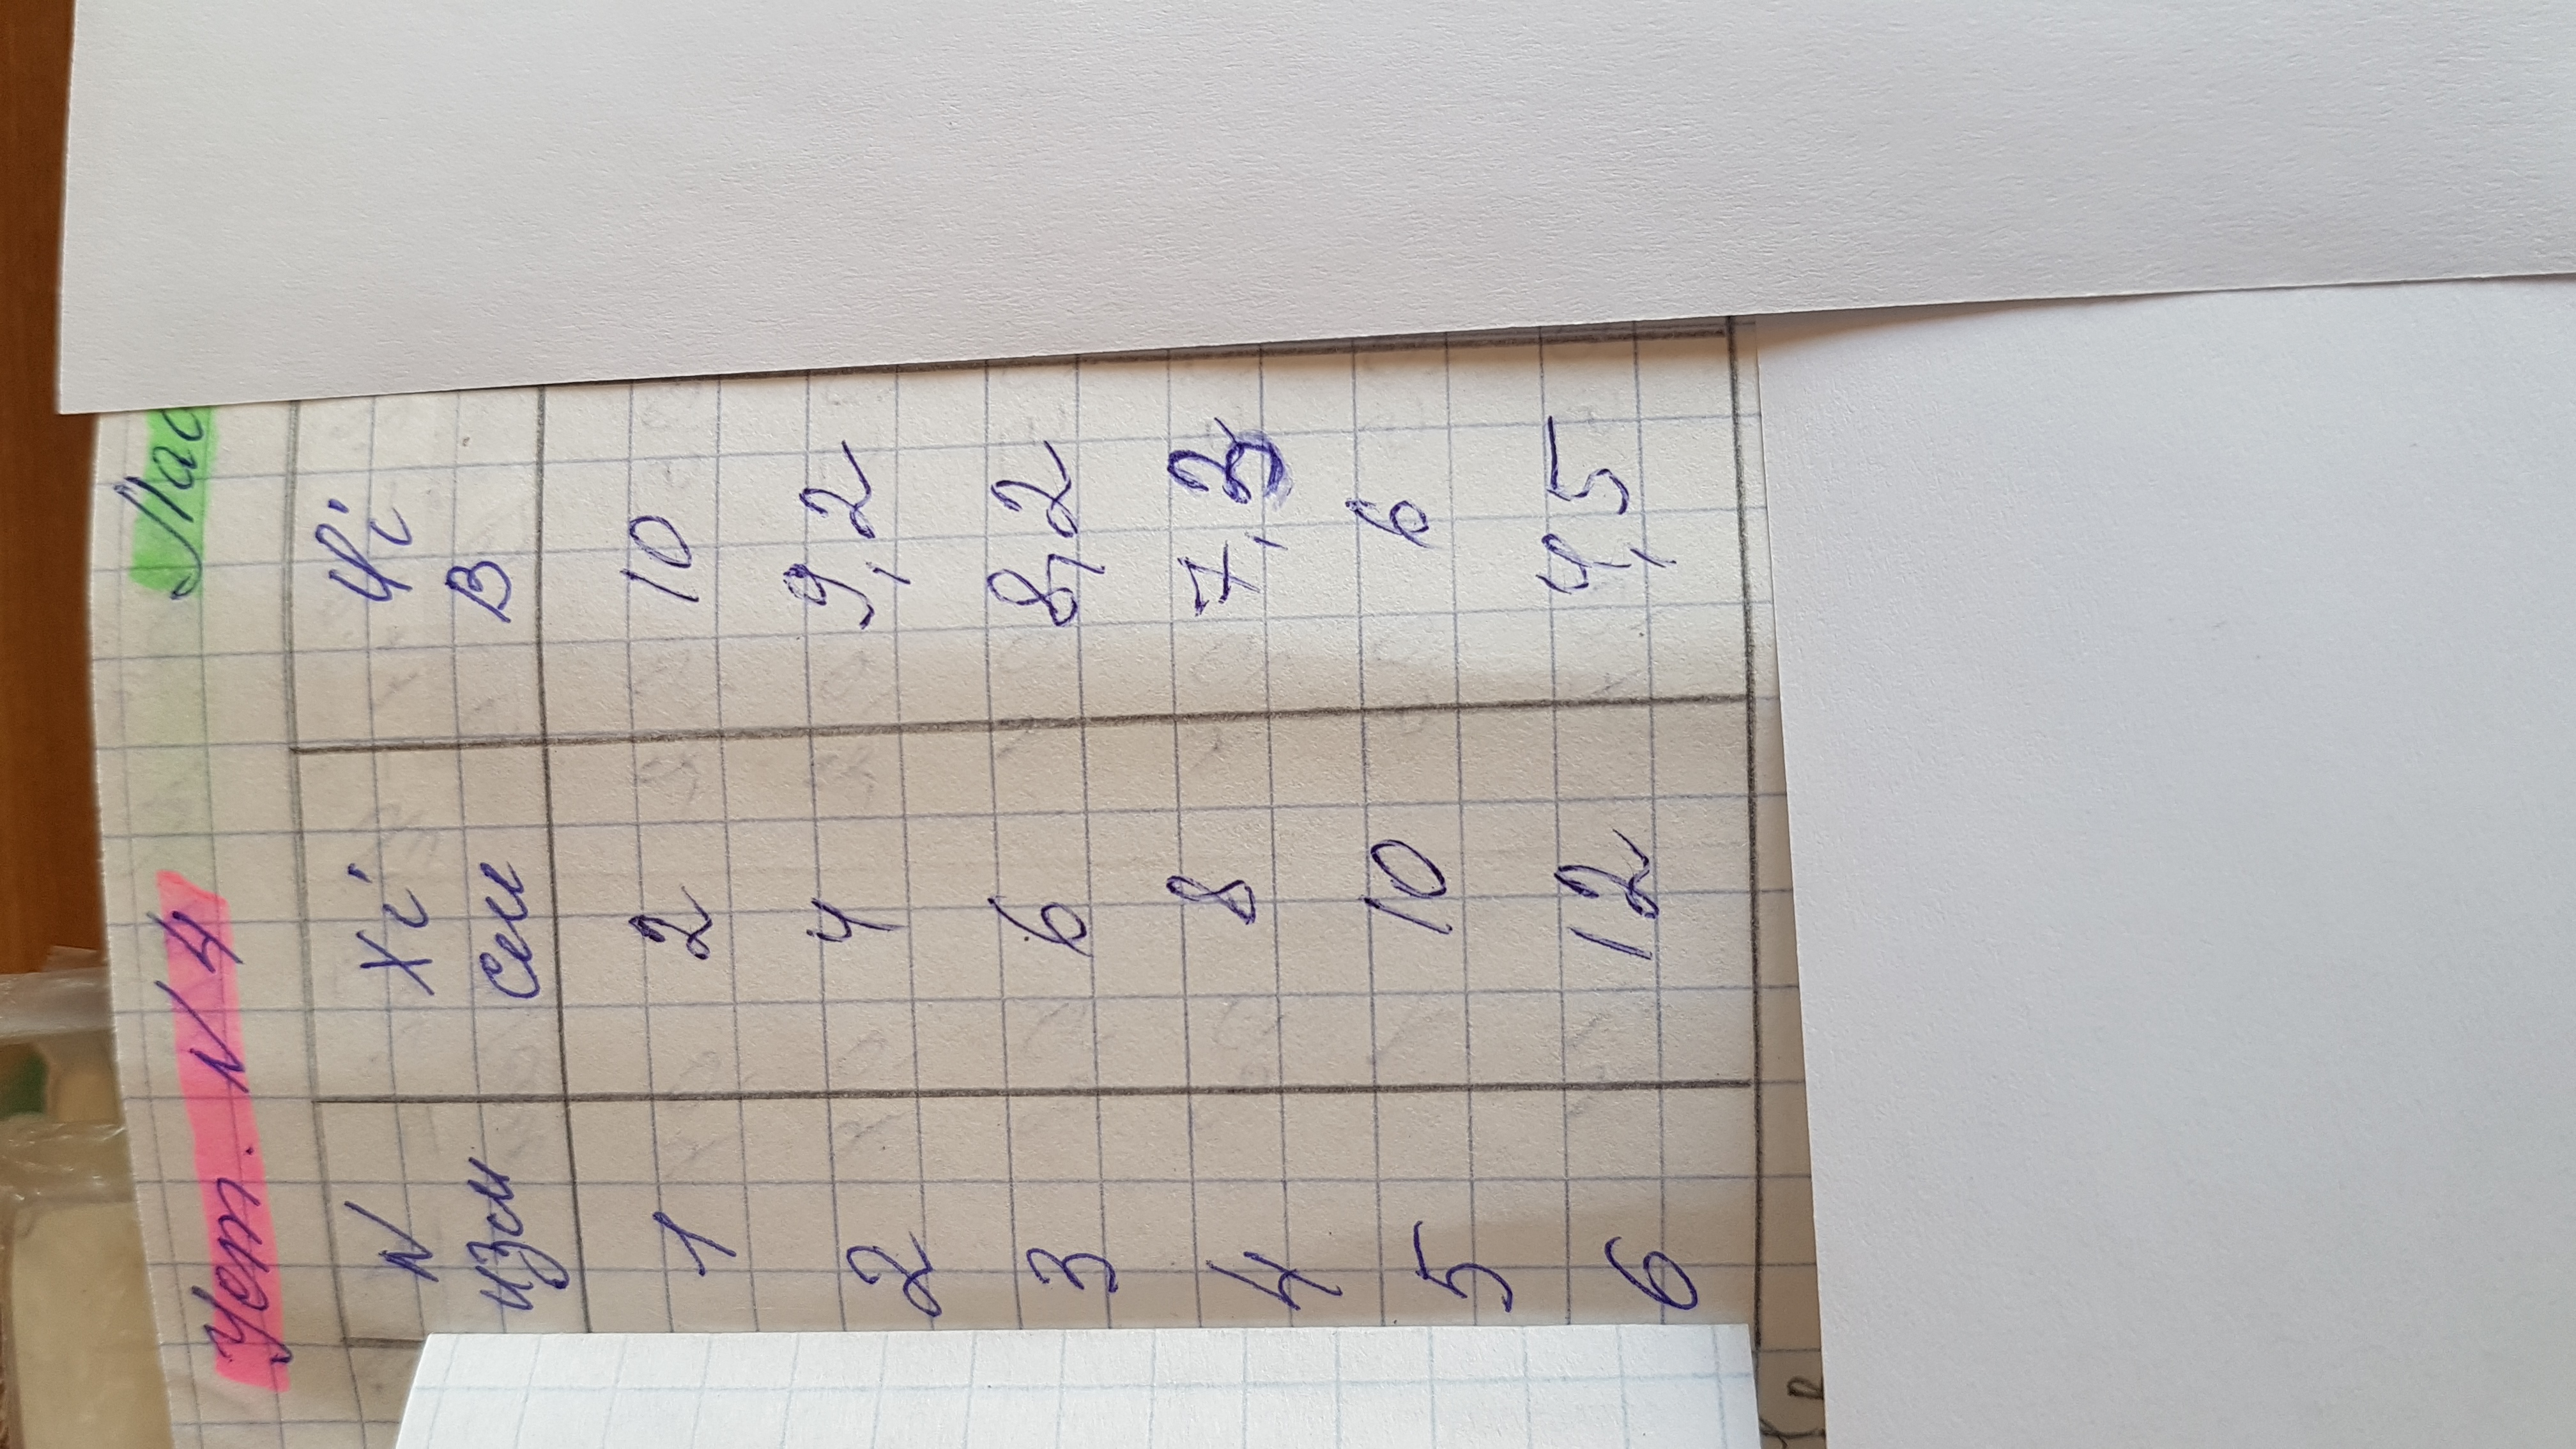 Уст. N 4 Лас
N xi φi
изм см В
1 2 10
2 4 9,2
3 6 8,2
4 8 7,3
5 10 6
6 12 4,5